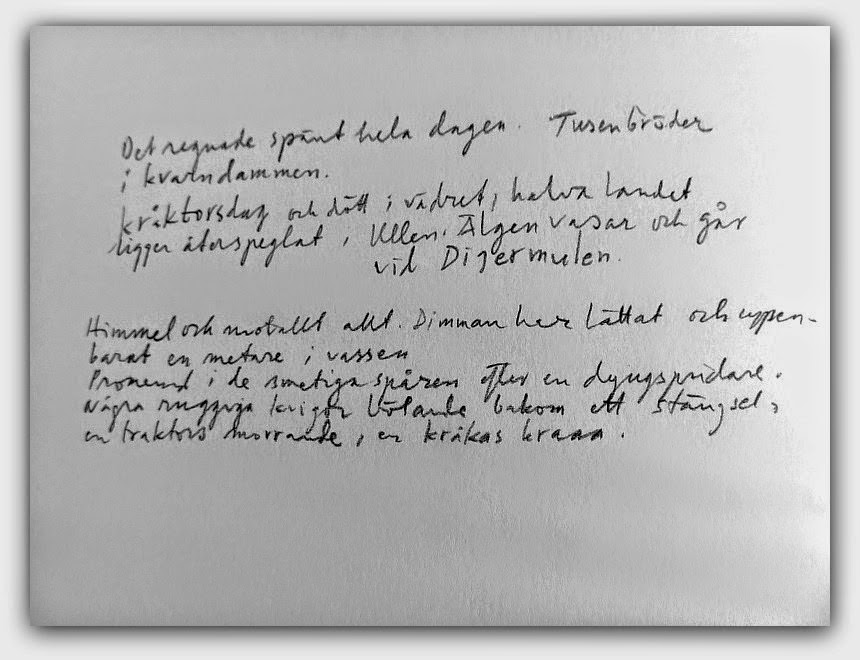 Det regnade spänt hela dagen. Tusenbröder
i kvarndammen.
kråktorsdag och dött i vädret, halva landet
ligger återspeglat i Ullen. Älgen vasar och går
vid Digermulen.
Himmel och motallt allt. Dimman har lättat och uppen-
barat en metare i vassen
Promenad i de smetiga spåren efter en dyngspridare.
Några ruggiga kvigor bölande bakom ett stängsel,
en traktors morrande, en kråkas kraaa.